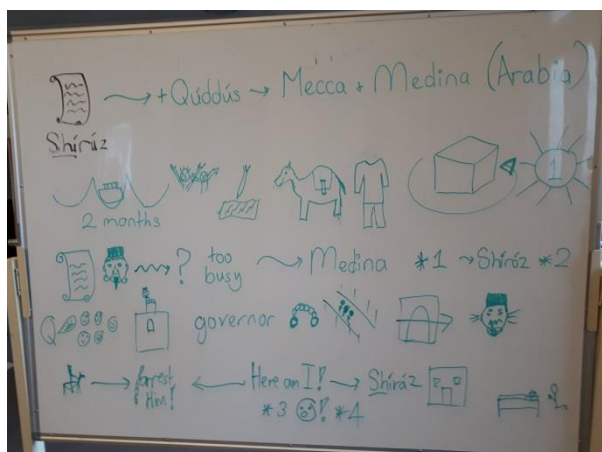 → + Quddús → Mecca + Medina (Arabia)
Shíráz
1
2 months
? too busy → Medina *1 → Shíráz *2
Q governor
→ Arrest Him! ← Here am I! → Shíráz
*3 ! *4